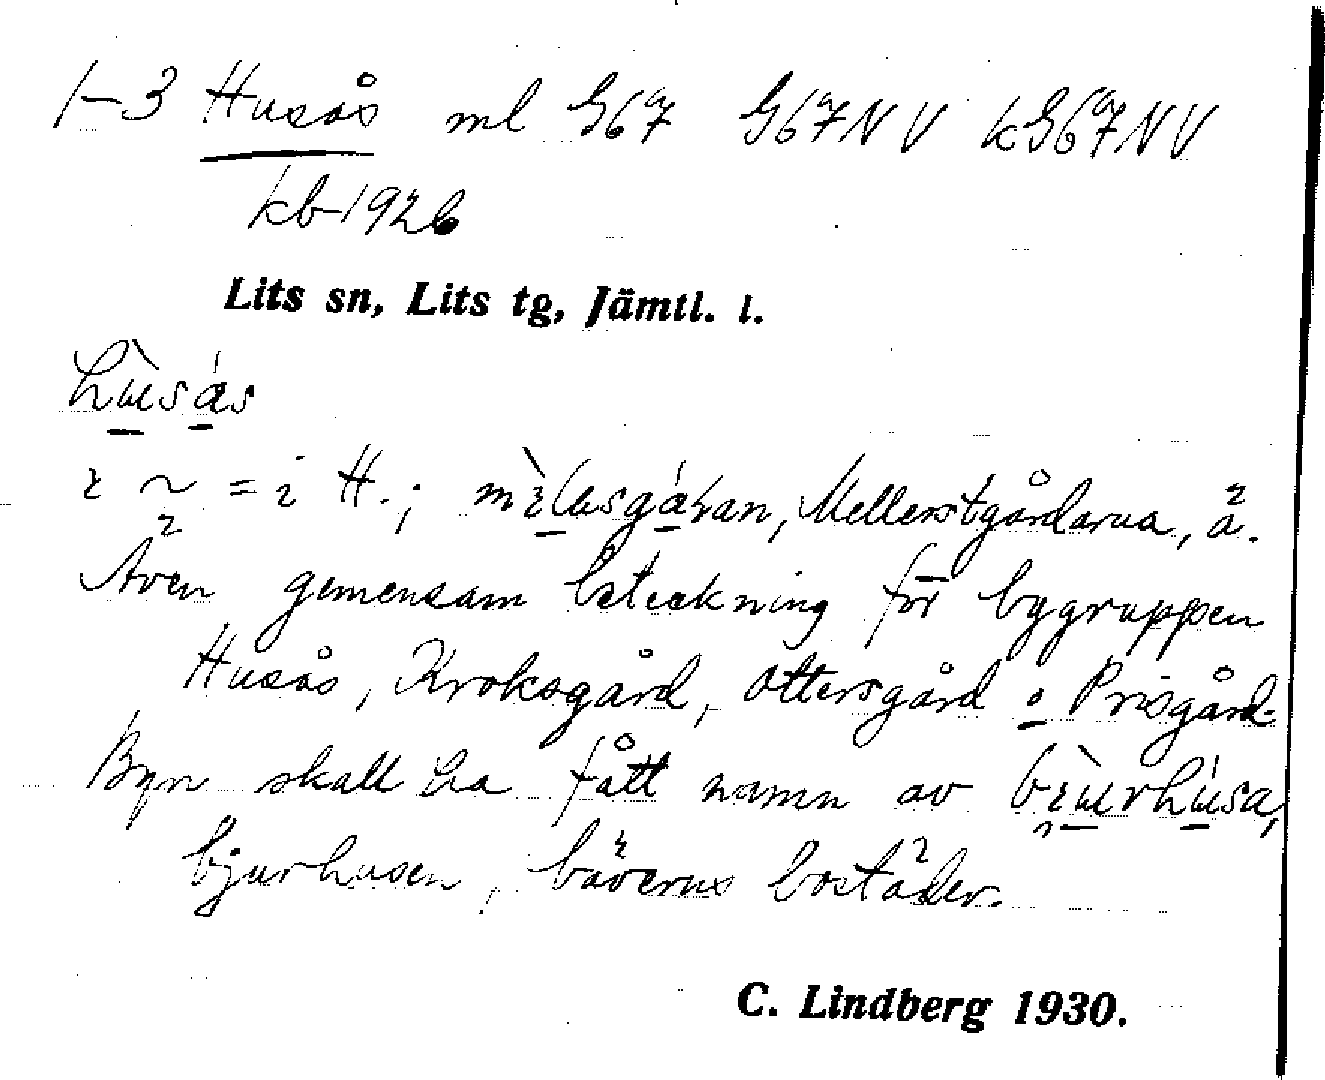 1–3 Husås ml G67 G67NV kG67NV
kb 1926
Lits sn, Lits tg, Jämtl. l.
hùsás
= i H.; Mellerstgårdarna, ä.
Även gemensam beteckning för bygruppen
Husås, Kroksgård, Ottersgård o Prisgård.
Byn skall ha fått namn av
bjurhusen, bäverns bostäder.
C. Lindberg 1930.